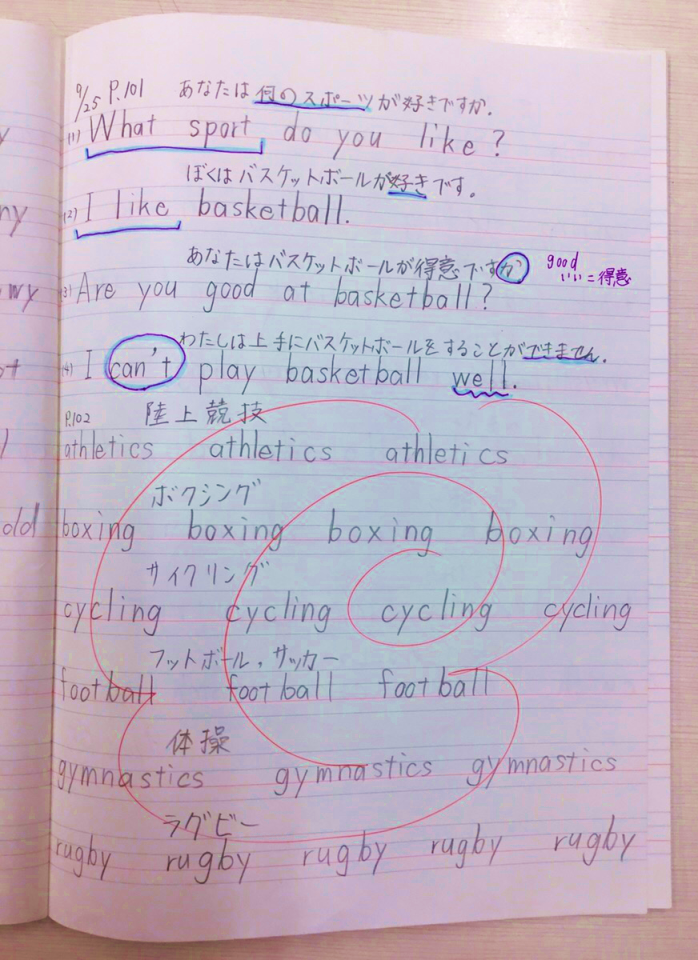 9/25 P.101 あなたは何のスポーツが好きですか.
(1) What sport do you like?
ぼくはバスケットボールが好きです。
(2) I like basketball.
あなたはバスケットボールが得意ですか good
いい=得意
(3) Are you good at basketball?
わたしは上手にバスケットボールをすることができません.
(4) I can't play basketball well.
P.102 陸上競技
athletics athletics athletics
ボクシング
boxing boxing boxing boxing
サイクリング
cycling cycling cycling cycling
フットボール,サッカー
football football football
体操
gymnastics gymnastics gymnastics
ラグビー
rugby rugby rugby rugby rugby